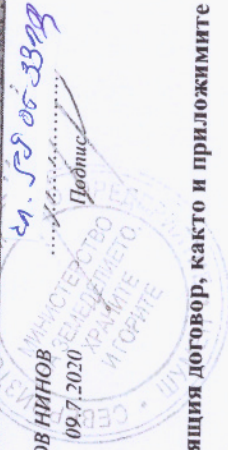 чл. 59 от ЗЗЛД
ОВ НИНОВ
09.7.2020
Подпис
МИНИСТЕРСТВО
ЗЕМЕДЕЛИЕТО,
ХРАНИТЕ
И ГОРИТЕ
ящия договор, както и приложимите